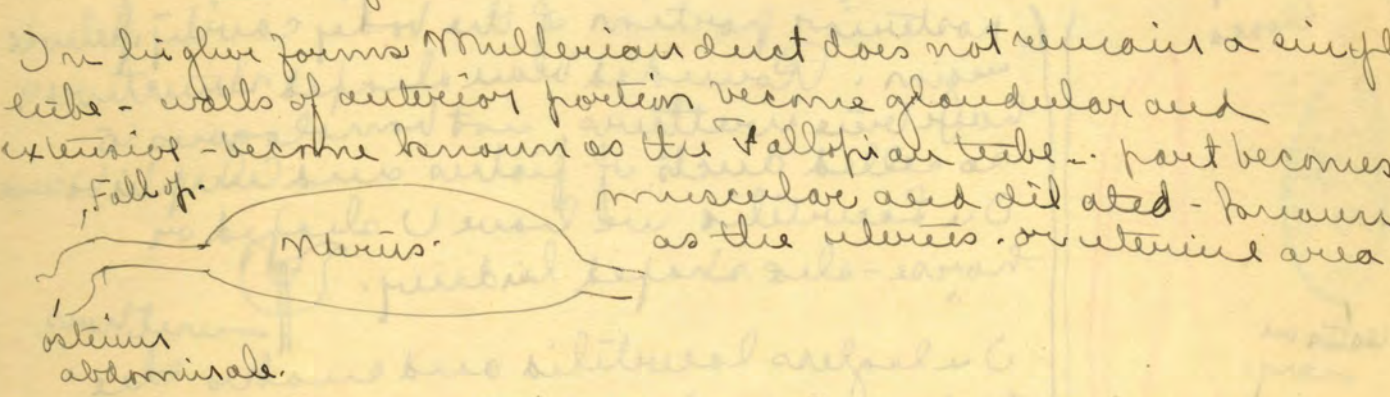 In higher forms Mullerian duct does not remain a singl
tube - walls of anterior portion become glandular and
extensive - become known as the Fallopian tube -. part becomes
Fallop.
muscular and dilated - known
Uterus.
as the uterus. or uterine area
ostium
abdominale.